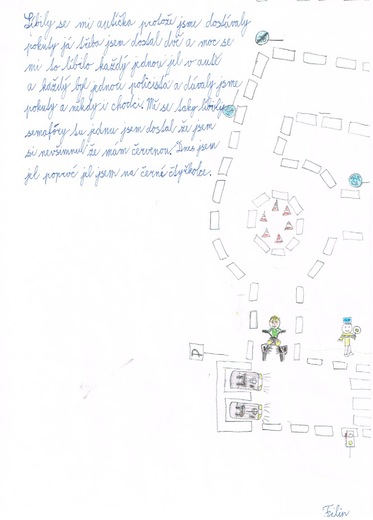 Líbily se mi autíčka protože jsme dostávaly
pokuty já třeba jsem dostal dvě a moc se
mi to líbilo každý jednou jel v autě
a každý byl jednou policista a dávaly jsme
pokuty a někdy i chodci. Mi se taky líbily
semafóry tu jednu jsem dostal že jsem
si nevšimnul že mám červenou. Dnes jsem
jel poprvé jel jsem na černé čtyřkolce.
P
Filip